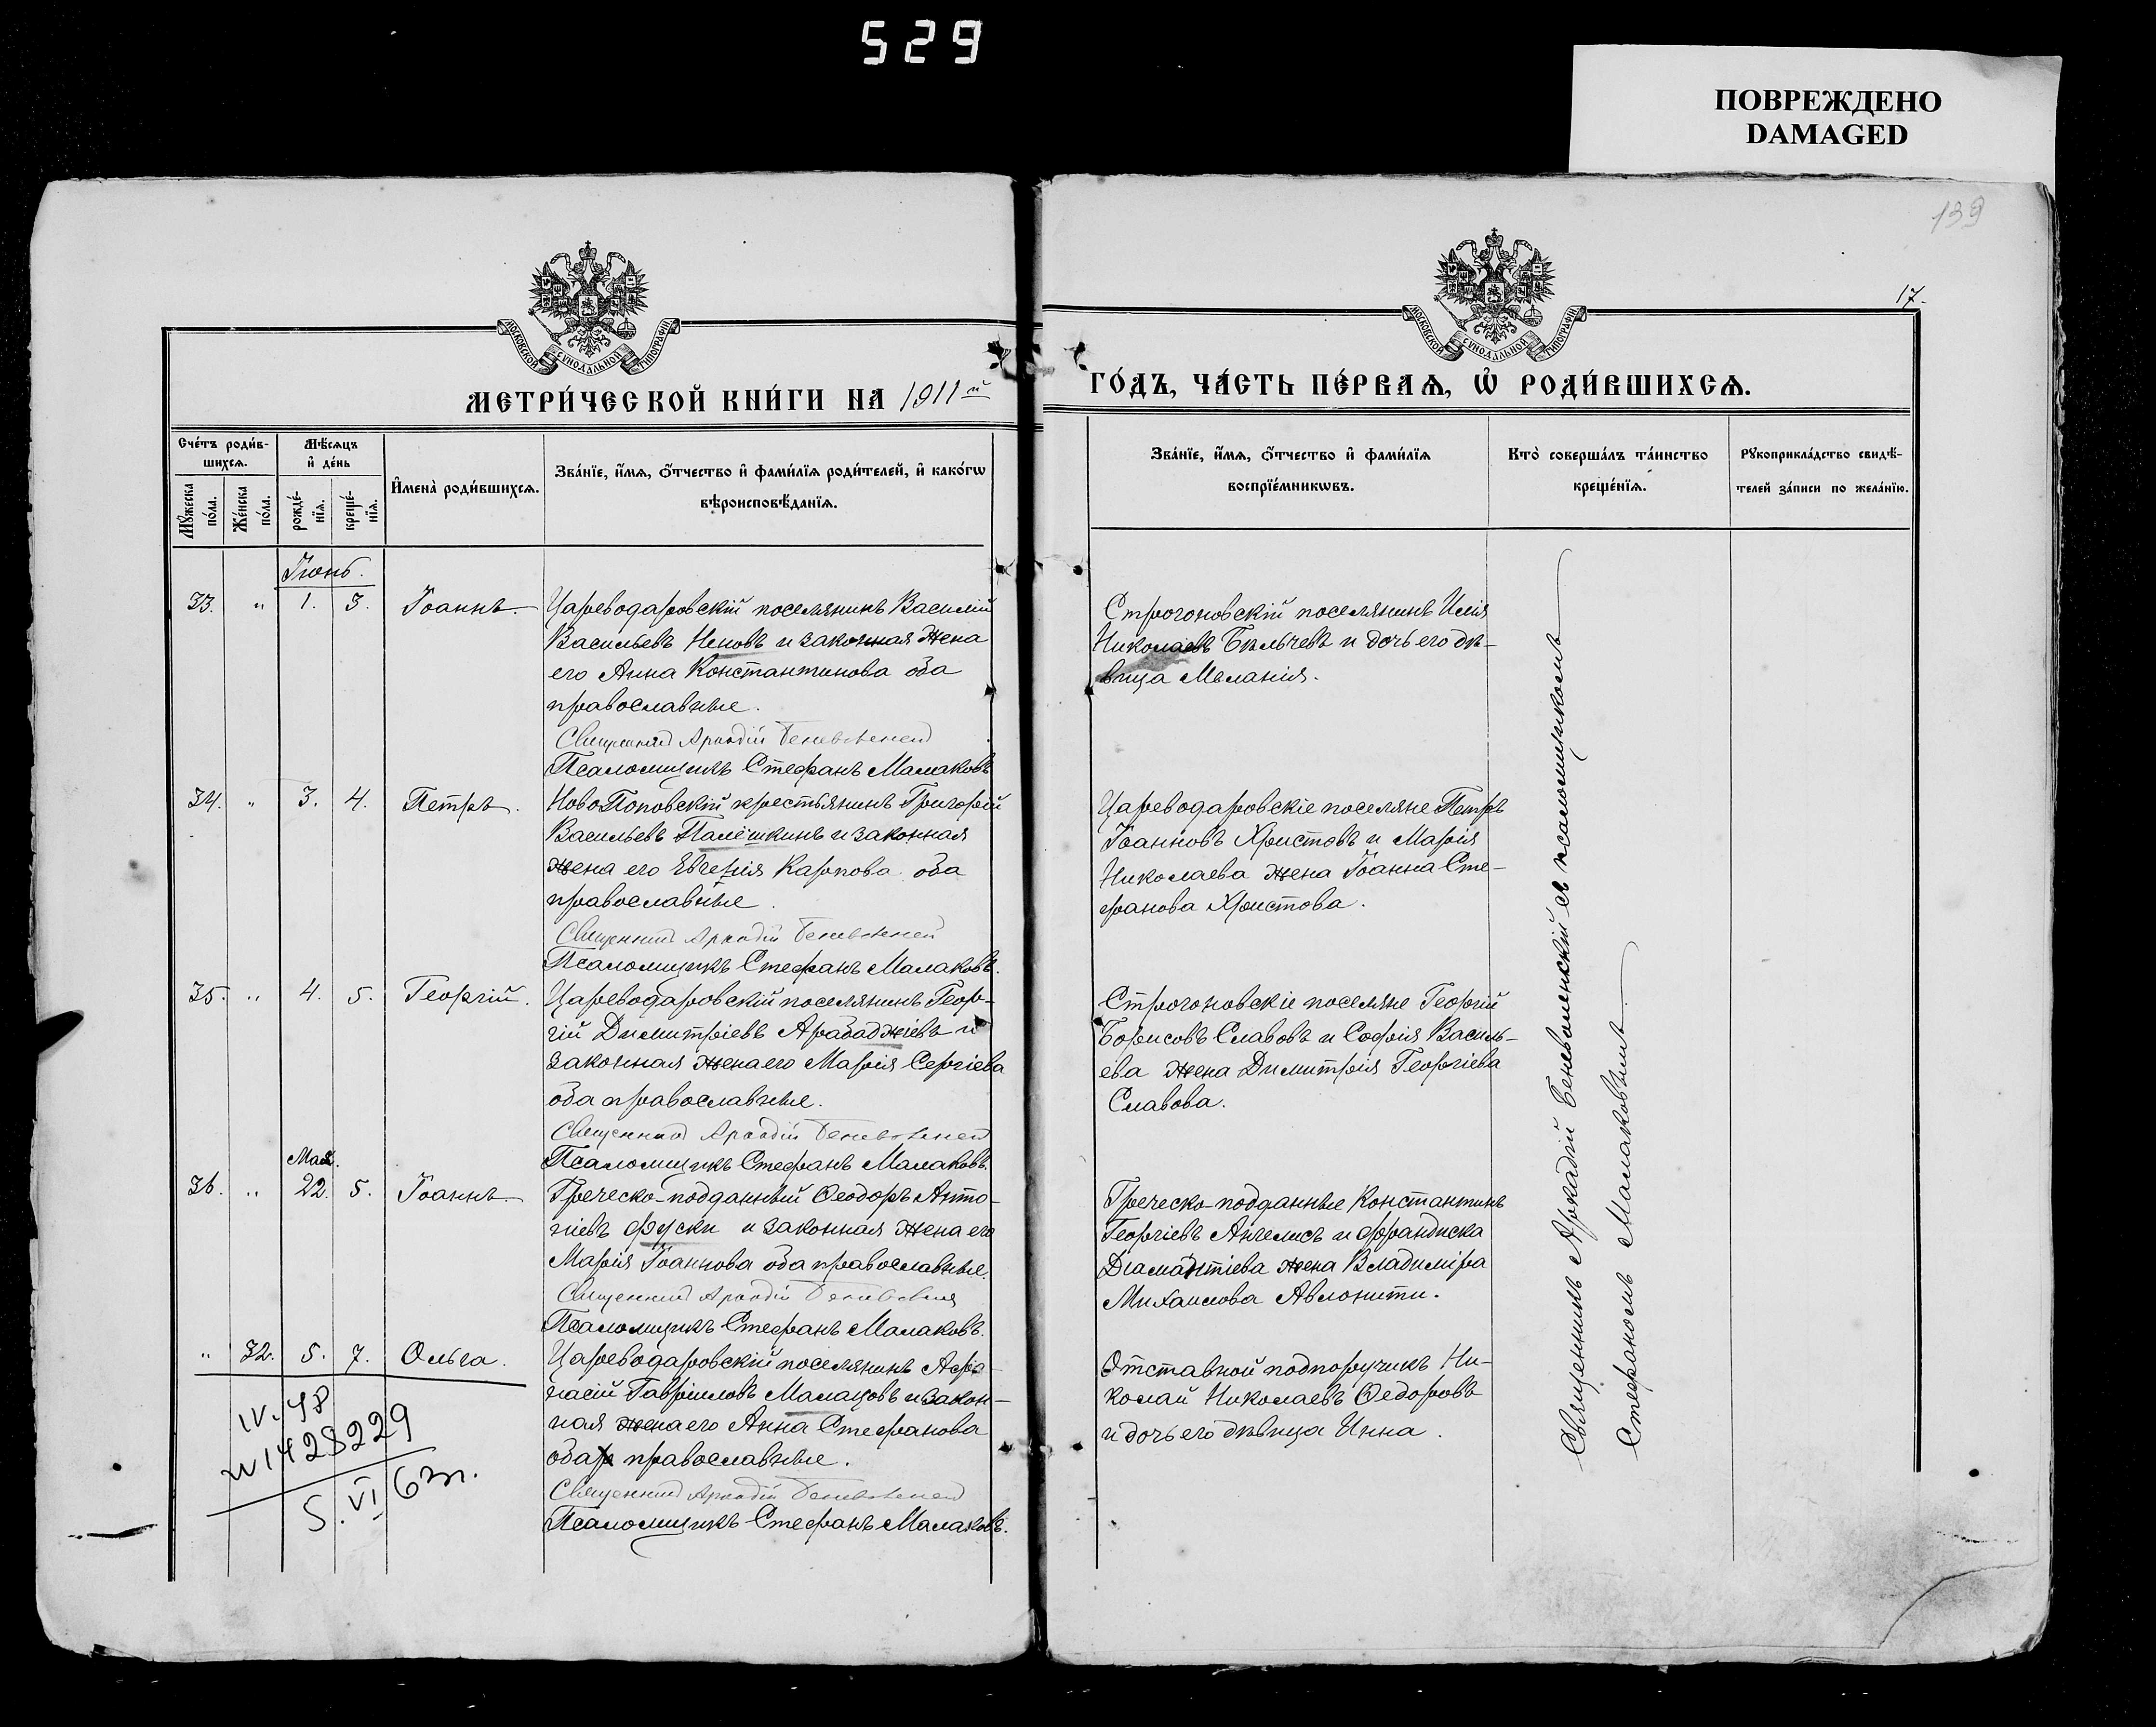 529
ПОВРЕЖДЕНО
DAMAGED
139
17.
МОСКОВСКОЙ СУНОДАЛЬНОЙ ТИПОГРАФІИ
МОСКОВСКОЙ СУНОДАЛЬНОЙ ТИПОГРАФІИ
МЕТРИ́ЧЕСКОЙ КНИ́ГИ НА 1911й
ГО́ДЪ, ЧА́СТЬ ПЕ́РВАѦ, Ѡ҆ РОДИ́ВШИХСѦ.
Сче́тъ роди́в-
шихсѧ.
Мꙋ́жеска
по́ла.
Же́нска
по́ла.
Мѣ́сѧцъ
и҆ де́нь
рожде́-
нїѧ.
креще́-
нїѧ.
И҆мена̀ роди́вшихсѧ.
Зва́нїе, и҆́мѧ, ѻ҆́тчество и҆ фами́лїѧ роди́телей, и҆ како́гѡ
вѣроисповѣ́данїѧ.
Зва́нїе, и҆́мѧ, ѻ҆́тчество и҆ фами́лїѧ
воспрїе́мникѡвъ.
Кто̀ соверша́лъ та́инство
креще́нїѧ.
Рꙋкоприкла́дство свидѣ́-
телей за́писи по жела́нїю.
Іюнь.
33. " 1. 3. Іоаннъ. Цареводаровскій поселянинъ Василій
Васильевъ Неновъ и законная жена
его Анна Константинова оба
православные.
Священникъ Аркадій Беневоленскій
Псаломщикъ Стефанъ Малаковъ
Строгоновскій поселянинъ Илія
Николаевъ Бѣльчевъ и дочь его дѣ-
вица Меланія.
34. " 3. 4. Петръ. НовоПоповскій крестьянинъ Григорій
Васильевъ Палёшкинъ и законная
жена его Евгенія Карпова оба
православные.
Священникъ Аркадій Беневоленскій
Псаломщикъ Стефанъ Малаковъ.
Цареводаровскіе поселяне Петръ
Іоанновъ Христовъ и Марія
Николаева жена Іоанна Сте-
фанова Христова.
35. " 4. 5. Георгій. Цареводаровскій поселянинъ Геор-
гій Димитріевъ Арабаджіевъ и
законная жена его Марія Сергіева
оба православные.
Священникъ Аркадій Беневоленскій
Псаломщикъ Стефанъ Малаковъ.
Строгоновскіе поселяне Георгій
Борисовъ Славовъ и Софія Василь-
ева жена Димитрія Георгіева
Славова.
Мая.
36. " 22. 5. Іоаннъ. Греческо-подданный Ѳеодоръ Анто-
ніевъ Фуски и законная жена его
Марія Іоаннова оба православные.
Священникъ Аркадій Беневоленскій
Псаломщикъ Стефанъ Малаковъ.
Греческо-подданные Константинъ
Георгіевъ Ангелисъ и Франдиска
Діамантіева жена Владиміра
Михаилова Авлонити.
" 32. 5. 7. Ольга. Цареводаровскій поселянинъ Афа-
насій Гавріиловъ Малацовъ и закон-
ная жена его Анна Стефанова
оба православные.
Священникъ Аркадій Беневоленскій
Псаломщикъ Стефанъ Малаковъ.
Отставной подпоручикъ Ни-
колай Николаевъ Ѳедоровъ
и дочь его дѣвица Инна.
IV. 48
N 1428229
5. VI 63г.
Священникъ Аркадій Беневоленскій съ псаломщикомъ
Стефаномъ Малаковымъ